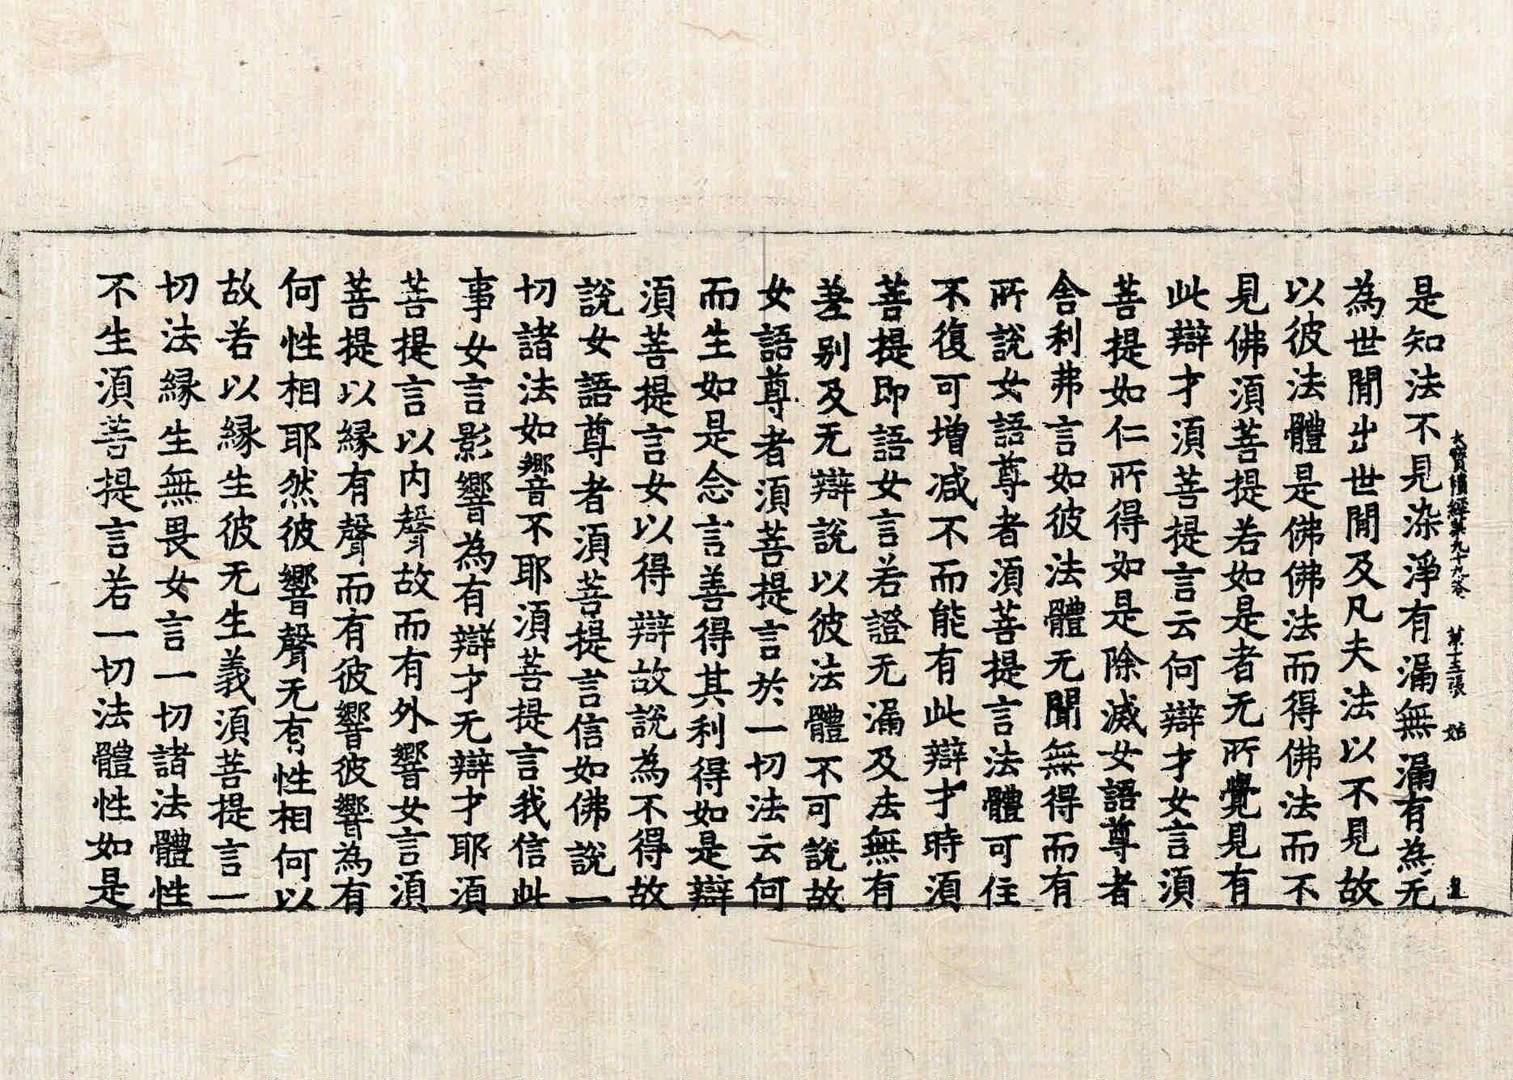 大寶積經第九十九卷 第十三張 始
是知法不見染淨有漏無漏有為无
為世閒出世閒及凡夫法以不見故
以彼法體是佛佛法而得佛法而不
見佛須菩提若如是者无所覺見有
此辯才須菩提言云何辯才女言須
菩提如仁所得如是除滅女語尊者
舍利弗言如彼法體无聞無得而有
所說女語尊者須菩提言法體可住
不復可增減不而能有此辯才時須
菩提即語女言若證无漏及法無有
差別及无辯說以彼法體不可說故
女語尊者須菩提言於一切法云何
而生如是念言善得其利得如是辯
須菩提言女以得辯故說為不得故
說女語尊者須菩提言信如佛說一
切諸法如響不耶須菩提言我信此
事女言影響為有辯才无辯才耶須
菩提言以內聲故而有外響女言須
菩提以緣有聲而有彼響彼響為有
何性相耶然彼響聲无有性相何以
故若以緣生彼无生義須菩提言一
切法緣生無畏女言一切諸法體性
不生須菩提言若一切法體性如是